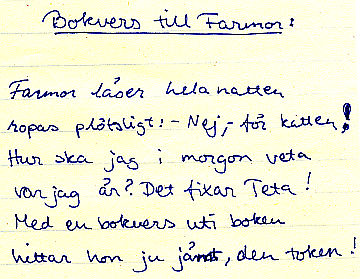 Bokvers till Farmor:
Farmor läser hela natten
ropas plötsligt: - Nej, - för katten!
Hur ska jag i morgon veta
var jag är? Det fixar Teta!
Med en bokvers uti boken
hittar hon ju jämt, den token!